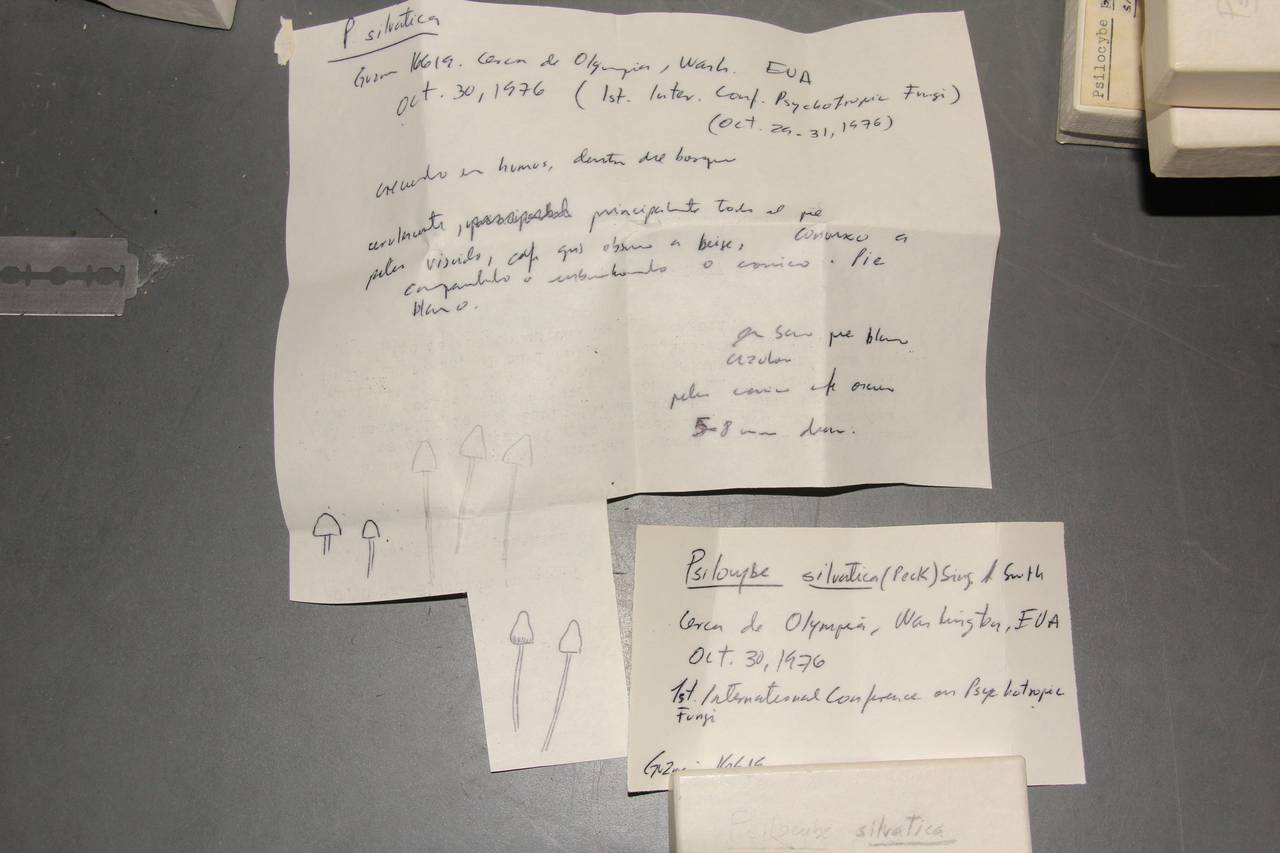 P. silvatica
Guzmán 16619. Cerca de Olympia, Wash. EUA
Oct. 30, 1976 (1st. Inter. Conf. Psychotropic Fungi)
(Oct. 29-31, 1976)
creciendo en humus, dentro del bosque
principalmente todo el pie
pileo viscido, café gris obscuro a beige, convexo a
campanulado o o conico. Pie
blanco.
pie blanco
azuloso
pileo conico café oscuro
5-8 mm diam.
Psilocybe silvatica (Peck) Sing & Smith
Cerca de Olympia, Washington, EUA
Oct. 30, 1976
1st. International Conference on Psychotropic
Fungi
Guzmán 16619
Psilocybe silvatica
Psilocybe